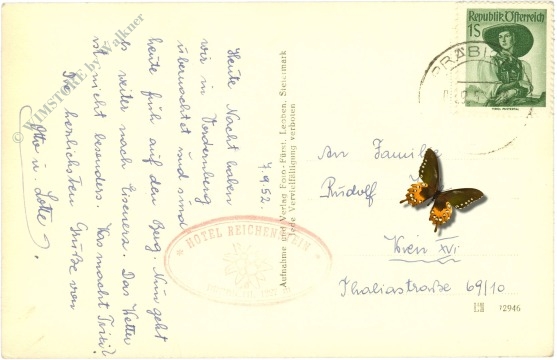 7.9.52.
Heute Nacht haben
wir in Vordernberg
übernachtet und sind
heute früh auf den Berg. Nun geht
es weiter nach Eisenerz. Das Wetter
ist nicht besonders. Was macht
Die herzlichsten Grüße von
Otto u. Lotte.
© WIMSTORE by Walkner
Aufnahme und Verlag Foto-Fürst, Leoben, Steiermark
Jede Vervielfältigung verboten
HOTEL REICHENSTEIN
Republik Österreich
1S
PRÄBI
An Familie
Rudolf
Wien XVI
Thaliastraße 69/10
12946